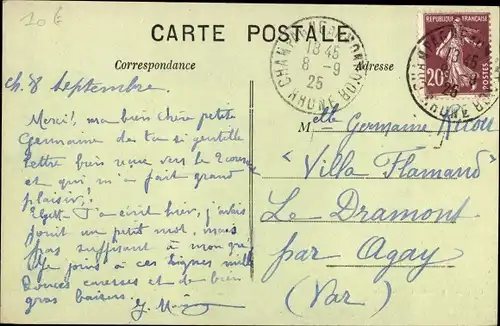 10€
CARTE POSTALE
Correspondance
Adresse
CHAMPAGNE AU MONT D'OR
18 45
8 - 9
25
RHONE
REPUBLIQUE FRANÇAISE
20c
POSTES
18 45
8 - 9
25
RHONE
Ch. 8 Septembre
Merci, ma bien chère petite
Germaine de ta si gentille
lettre bien reçue vers la
et qui m'a fait grand
plaisir!
T'ai écrit hier, j'avais
joint un petit mot, mais
pas suffisant à mon gré
Je joins à ces lignes mille
douces caresses et de bien
gros baisers.
Melle Germaine
"Villa Flamand"
Le Dramont
par Agay
(Var)